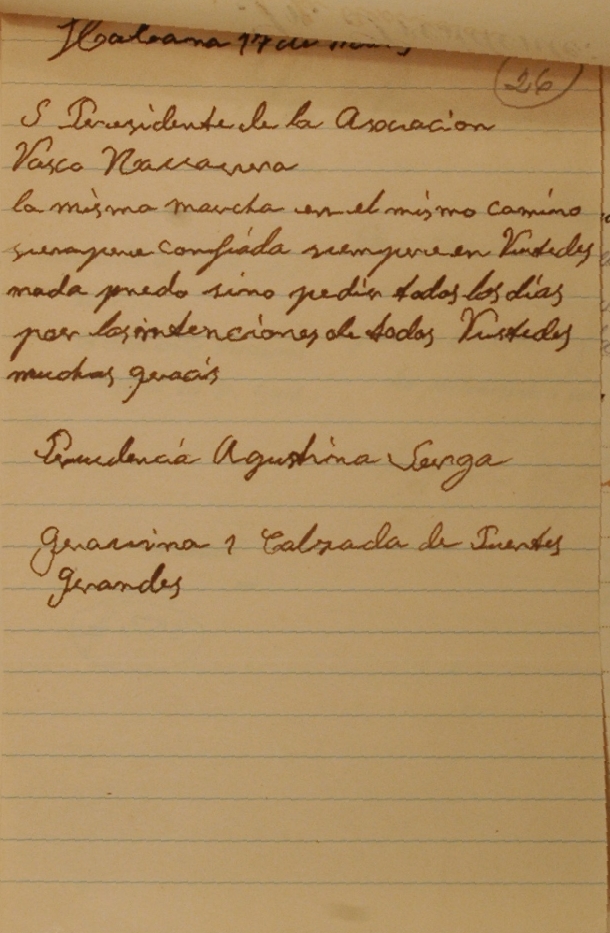 Habana 17 de
26
S Peresidente de la Asociacion
Vasco Navarra
la misma marcha en el mismo camino
siempre confiada siempere en Vustedes
nada puedo sino pedir todos los dias
por las intenciones de todos Vustedes
muchas geracias
Perudencia Agustina
Geravina 1 Calzada de Puentes
Gerandes